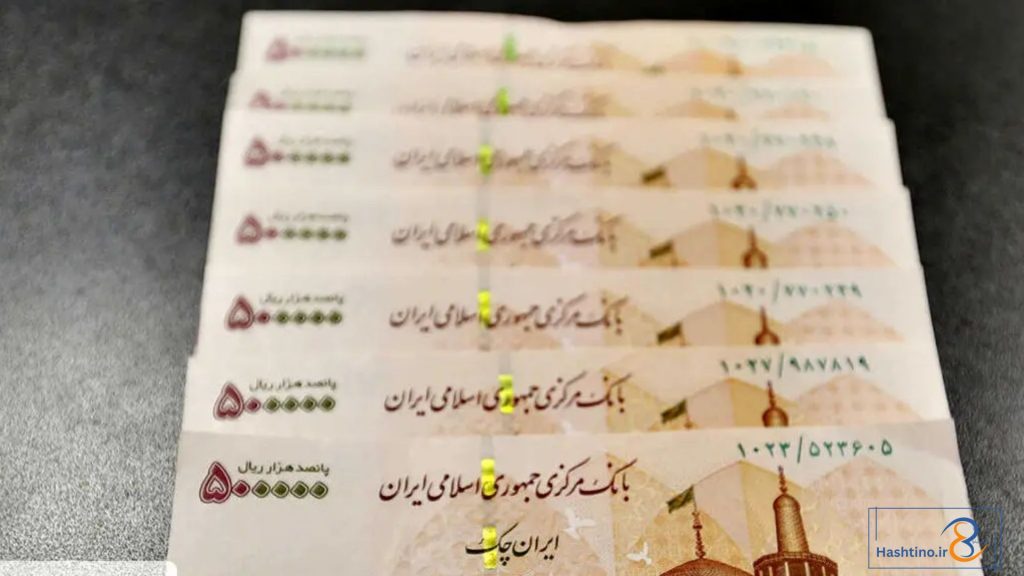 ۵۰۰۰۰۰
بانک مرکزی جمهوری اسلامی ایران
۵۰۰۰۰۰
بانک مرکزی جمهوری اسلامی ایران
۵۰۰۰۰۰
بانک مرکزی جمهوری اسلامی ایران
پانصد هزار ریال
۵۰۰۰۰۰
بانک مرکزی جمهوری اسلامی ایران
پانصد هزار ریال
۵۰۰۰۰۰
بانک مرکزی جمهوری اسلامی ایران
۱۰۲۷/۹۸۷۸۱۹
پانصد هزار ریال
۵۰۰۰۰۰
بانک مرکزی جمهوری اسلامی ایران
۱۰۲۳/۵۲۳۶۰۵
پانصد هزار ریال
۵۰۰۰۰۰
بانک مرکزی جمهوری اسلامی ایران
ایران چک
Hashtino.ir